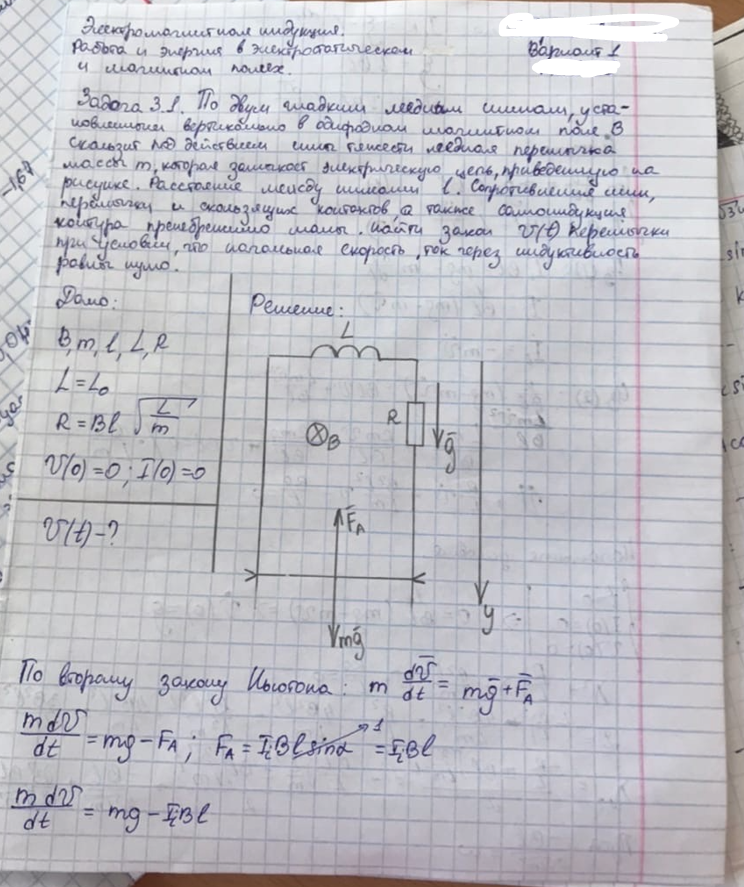 Электромагнитная индукция.
Работа и энергия в электростатическом
и магнитном полях.
Вариант 1
Задача 3.1. По двум гладким медным шинам, уста-
новленным вертикально в однородном магнитном поле B
скользит под действием силы тяжести медная перемычка
массы m, которая замыкает электрическую цепь, приведенную на
рисунке. Расстояние между шинами l. Сопротивления шин,
перемычки и скользящих контактов, а также самоиндукция
контура пренебрежимо малы. Найти закон V(t) перемычки
при условии, что начальная скорость, ток через индуктивность
равны нулю.
Дано:
B, m, l, L, R
L = L₀
R = Bl √(L/m)
V(0) = 0; I(0) = 0
V(t) - ?
Решение:
L
R
⊗B
g̅
F̅A
mg̅
y
По второму закону Ньютона: m dV̅/dt = mg̅ + F̅A
mdV/dt = mg - FA; FA = IiBl sinα 1 = IiBl
mdV/dt = mg - IiBl
-1,67